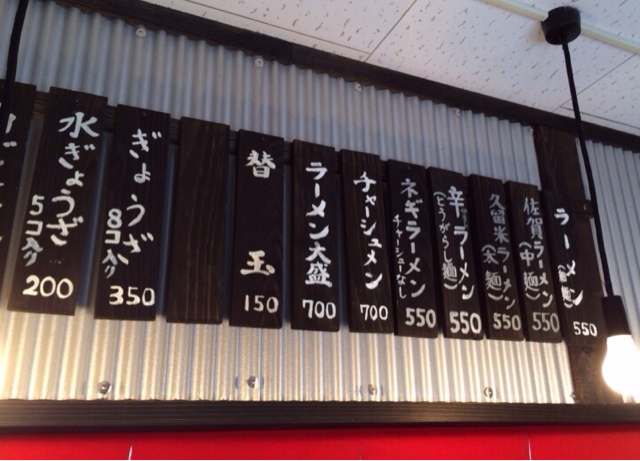 ラーメン
550
佐賀ラーメン
(中麺)
550
久留米ラーメン
550
辛ラーメン
(とうがらし麺)
550
ネギラーメン
チャーシューなし
550
チャーシュメン
700
ラーメン大盛
700
替玉
150
ぎょうざ
8コ入り
350
水ぎょうざ
5コ入り
200